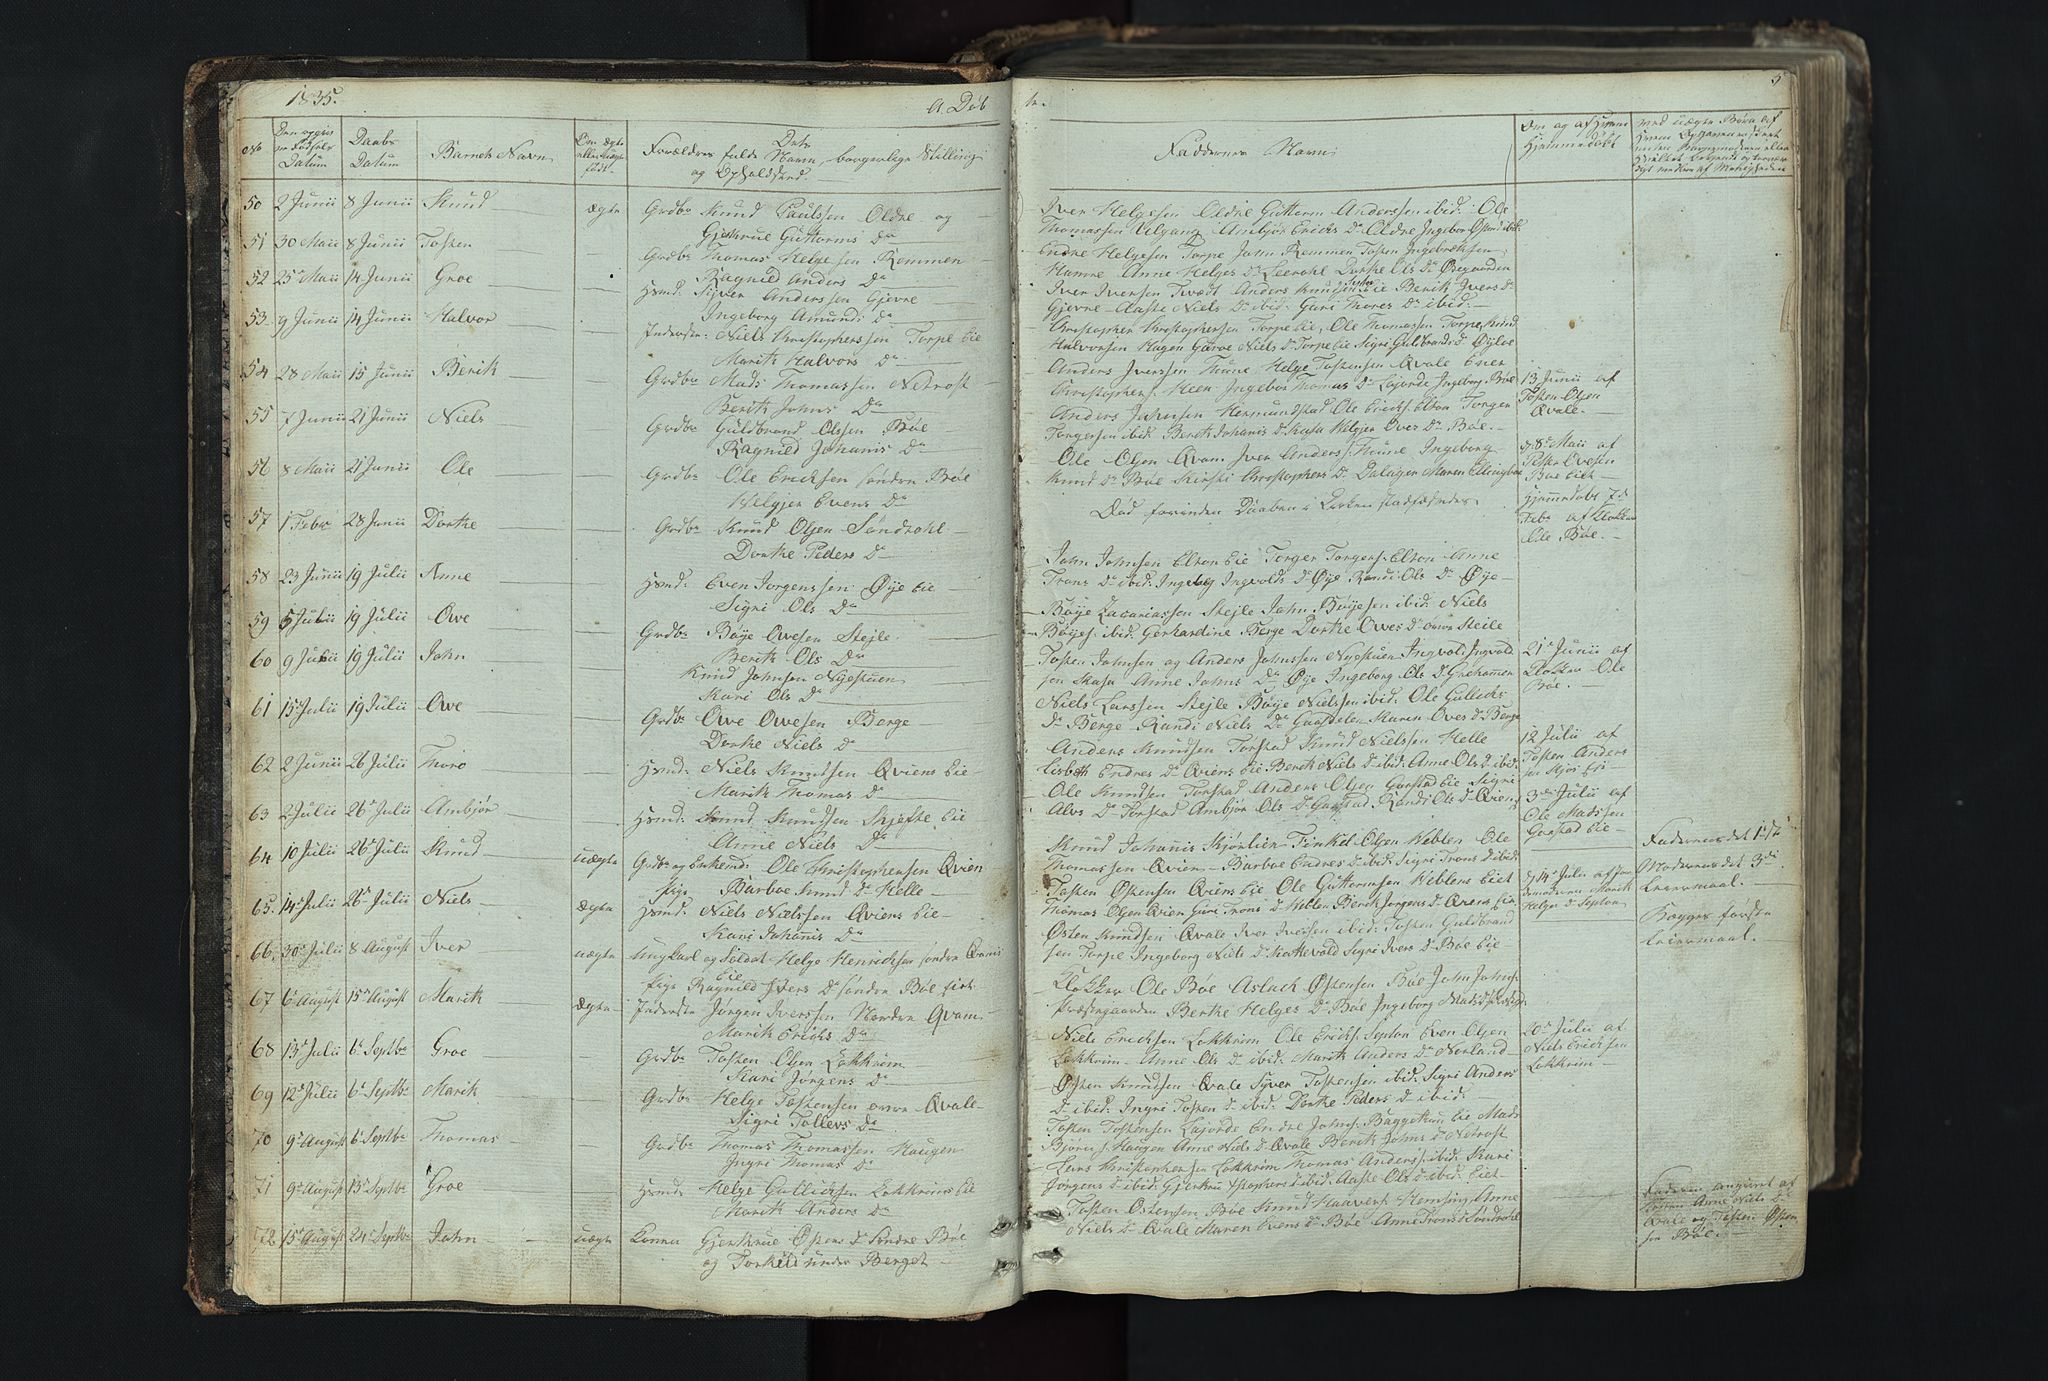 1835.
A. Døb
te.
5
No
Den opgivne Fødsels Datum
Daabs Datum
Barnets Navn
Om ægte eller uægte født.
Dets Forældres fulde Navn, borgerlige Stilling og Opholdsted.
Faddernes Navn
Om og af hvem Hjemmedøbt
50 2 Junii 8 Junii Knud ægte Grdbr Knud Paulssen Oldre og
Gjertrue Guttorms Dr
Iver Helgesen Oldre Guttorm Anderssen ibid. Ole
Thomassen Ulgang Ambjør Ericks Dr Oldre Ingebor
51 30 Maii 8 Junii Tosten Grdbr Thomas Helgesen Remmen
Ragnild Anders Dr
Endre Helgesen Torpe John Remmen Tosten Ingebretsen
Hamre Anne Helges Dr Leerohl Dorthe Ols Dr Øvegaarden
52 25 Maii 14 Junii Groe Hsmd. Siver Anderssen Gjevre
Ingeborg Amunds Dr
Iver Iversen Tvedt Anders Knudsen Berit Ivers Dr
Gjevre Aaste Niels Dr ibid. Guri Thores Dr ibid.
53 9 Junii 14 Junii Halvor Inderste. Niels Christopherssen Torpe Eie
Marith Halvors Dr
Christopher Christophersen Torpe Eie, Ole Thomassen Torpe, Knud
Halvorsen Hagen Gurve Niels Dr Torpe Eie Sigri Guldbrands Dr Øyloe
54 28 Maii 15 Junii Berit Grdbr Mads Thomassen Netrost
Berith Johns Dr
Anders Iverssen Tune Helge Tostensen Qvale Ener
Christophers. Heen Ingebor Thomas Dr Lajorde Ingeborg Bøe
13 Junii af
Tosten Olsen
Qvale.
55 7 Junii 21 Junii Niels Grdbr Guldbrand Olssen Bøe
Ragnild Johanis Dr
Anders Johnsen Hermundstad Ole Ericks. Elton Torger
Torgersen ibid. Berith Johanis Dr Kasa Helgjer Oves Dr Bøe.
56 8 Maii 21 Junii Ole Grdbr Ole Ericksen søndre Bøe
Helgjer Evens Dr
Ole Olsen Qvam Iver Anders. Tune Ingeborg
Knud Dr Bøe Kirsti Christophers Dr Dalager Maren Ellingbøe
8 Maii af
Peter Ovesen
Bøe Eiet
57 1 Febr 28 Junii Dorthe Grdbr Knud Olsen Søndrohl
Dorthe Peders Dr
Død forinden Daaben i Kirken stadfæstedes
Hjemmedøbt 7de
Febr af Klokker
Ole Bøe.
58 23 Junii 19 Julii Anne Hsmd. Even Jorgenssen Øye Eie
Sigri Ols Dr
John Johnsen Elton Eie Torger Torgers. Elton Anne
Trons Dr ibid. Ingeborg Ingvolds Dr Øye Randi Ols Dr Øye
59 5 Julii 19 Julii Owe Grdbr Bøye Owesen Stejle
Berith Ols Dr
Bøye Zacariassen Stejle John Bøyesen ibid. Niels
Bøyes. ibid. Gerhardine Berge Dorthe Owes Dr Steile
60 9 Julii 19 Julii John Knud Johnsen Nyestuen
Kari Ols Dr
Tosten Johnsen og Anders Johnssen Nyestuen Ingvold Ingvold
sen Kasa Anne Johns Dr Øye Ingeborg Ols Dr
21 Junii af
Klokker Ole
Bøe.
61 15 Julii 19 Julii Owe Grdbr Owe Owesen Berge
Dorthe Niels Dr
Niels Larssen Stejle Bøye Nielssen ibid. Ole Gullicks
Dr Berge Randi Niels Dr Maren Oves Dr Berge
62 2 Junii 26 Julii Thore Hsmd. Niels Knutsen Qviens Eie
Marith Thomas Dr
Anders Knudsen Torstad Knud Nielssen Helle
Lisbeth Endres Dr Qviens Eie Berith Niels Dr ibid. Anne Ols Dr ibid.
12 Julii af
Tosten Anders
63 2 Julii 26 Julii Ambjør Hsmd. Knud Knudsen Skjefte Eie
Anne Niels Dr
Ole Knudsen Torstad Anders Olsen Gorstad Eie Sigri
Alvs Dr Torstad Ambjør Ols Dr Gorstad Randi Ols Dr Qviens
3de Julii af
Ole Madssen
Gorstad Eie
64 10 Julii 26 Julii Knud uægte Grdbr og Enkemd. Ole Christophersen Qvien
Pige Barboe Knud Dr Helle
Knud Johanis Kjørlien Finkel Olsen Weblen Ole
Thomassen Qvien Barboe Endres Dr ibid. Sigri Trons Dr ibid.
Faderens det 1ste
Moderens det 3die
Leiermaal.
65. 14 Julii 26 Julii Niels ægte Hsmd. Niels Nielssen Qviens Eie
Kari Johanis Dr
Tosten Østensen Qviens Eie Ole Guttormsen Weblens Eiet
Thomas Olsen Qvien Guri Trons Dr Weblen Berith Jørgens Dr Qviens Eie
14 Julii af
Marith
Helges Dr
66. 30 Julii 8 August Iver uægte Ungkarl og Soldat Helge Henricksen søndre Qvams
Eie
Pige Ragnild Ivers Dr søndre Bøe Eiet
Østen Knudsen Qvale Iver Iversen ibid. Tosten Guldbrand
sen Torpe Ingeborg Niels Dr Kattevold Sigri Ivers Dr Bøe Eie
Begges første
Leiermaal.
67 6 August 15 August Marith ægte Inderste Jørgen Iverssen Nordre Qvam
Marith Ericks Dr
Klokker Ole Bøe Aslack Østensen Bøe John Johns.
Præstegaarden Berthe Helges Dr Bøe Ingeborg Mads Dr
68 13 Julii 6 Septbr Groe Grdbr Tosten Olsen Lokkrim
Kari Jørgens Dr
Niels Ericksen Lokkrim Ole Ericks. Septon Even Olsen
Lokkrim Anne Ols Dr ibid. Marith Anders Dr Norland
20 Julii af
Niels Ericksen
Lokkrim
69 12 Julii 6 Septbr Marith Grdbr Helge Tostensen Qvale
Sigri Tollevs Dr
Østen Knudsen Qvale Syver Tostensen ibid. Sigri Anders
Dr ibid. Ingri Tosten Dr ibid. Dorthe Peders Dr ibid.
70 9 August 6 Septbr Thomas Grdbr Thomas Thomassen Haugen
Ingri Thomas Dr
Tosten Tostensen Lajorde Endre Johns. Eie Mads
Bjørns. Haugen Anne Niels Dr Qvale Berith Johns Dr Netrost
71 9 August 13 Septbr Groe Hsmd. Helge Gullicksen Lokkrims Eie
Marith Anders Dr
Lars Christophersen Lokkrim Thomas Anders. ibid. Kari
Jørgens Dr ibid. Gjertrue Christophers Dr ibid. Aaste Ols Dr ibid. Eiet
72 15 August 24 Septbr John uægte Konne Gjertrue Østens Dr Søndre Bøe
og Torkild under Berget
Tosten Østensen Bøe Knud Haavers. Hemsing
Niels Dr Qvale Maren Evens Dr Bøe Anne Trons Dr Søndrohl
Faderen angivet af
Anne Niels Dr
Qvale og Tosten Østen
sen Bøe.